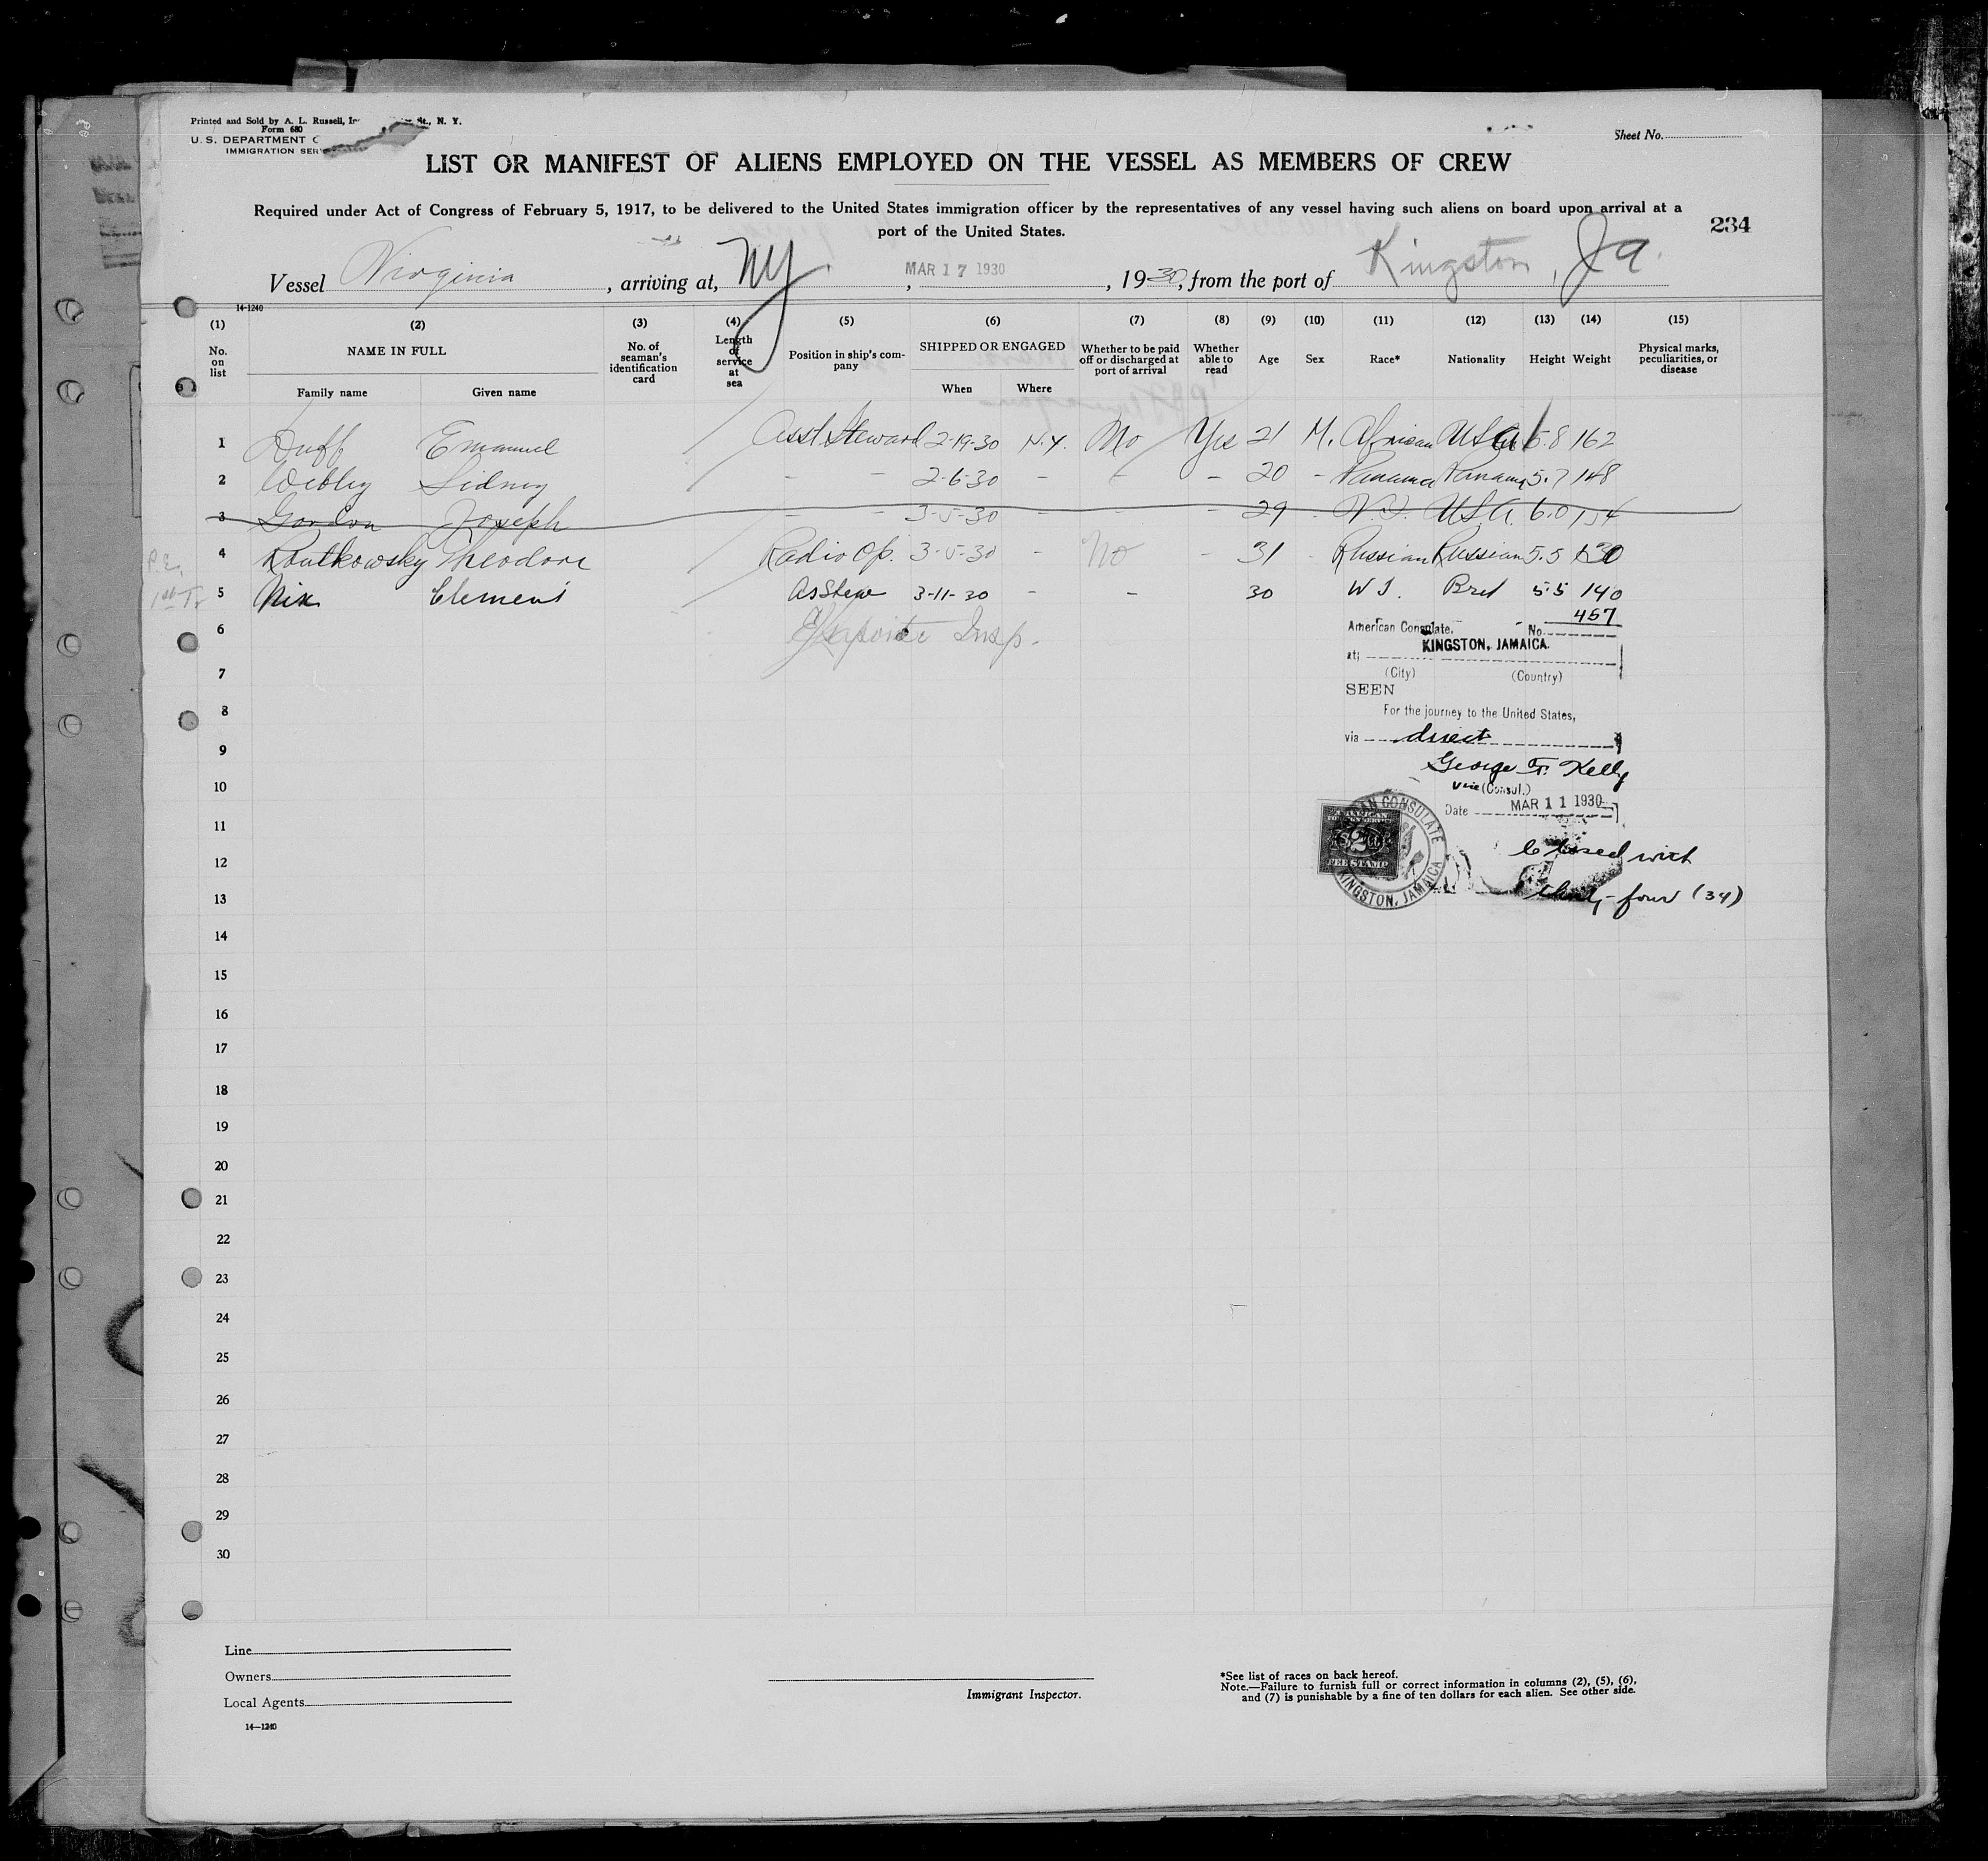 Printed and Sold by A. L. Russell, St., N. Y.
Form 680
U. S. DEPARTMENT
IMMIGRATION
Sheet No.
LIST OR MANIFEST OF ALIENS EMPLOYED ON THE VESSEL AS MEMBERS OF CREW
Required under Act of Congress of February 5, 1917, to be delivered to the United States immigration officer by the representatives of any vessel having such aliens on board upon arrival at a
port of the United States.
234
Vessel Virginia, arriving at, NY, MAR 17 1930, 1930, from the port of Kingston, Ja.
14-1240
(1) (2) (3) (4) (5) (6) (7) (8) (9) (10) (11) (12) (13) (14) (15)
No. on list NAME IN FULL No. of seaman's identification card Length of service at sea Position in ship's company SHIPPED OR ENGAGED Whether to be paid off or discharged at port of arrival Whether able to read Age Sex Race* Nationality Height Weight Physical marks, peculiarities, or disease
Family name Given name When Where
1 Duff Emanuel Asst. Steward 2-19-30 N.Y. No Yes 21 M. African USA 5.8 162
2 Webley Sidney - - 2-6-30 - - - 20 - Panama Panama 5.7 148
3 Gordon Joseph - - 3-5-30 - - - 29 - W.I. USA. 6.0 154
4 Routkowsky Theodore Radio Op. 3-5-30 - No - 31 - Russian Russian 5.5 130
5 Nix Clement AsStew 3-11-30 - - 30 W I. Brit 5.5 140
6 Insp.
American Consulate, No. 457
at; KINGSTON, JAMAICA.
(City) (Country)
7
SEEN
8
For the journey to the United States,
9
via direct
George F. Kelly
Vice (Consul.)
10
Date MAR 11 1930
11
AMERICAN CONSULATE KINGSTON, JAMAICA
AMERICAN
$2
FEE STAMP
12
with
13
thirty-four (34)
14
15
16
17
18
19
20
21
22
23
24
25
26
27
28
29
30
Line
Owners
Local Agents
Immigrant Inspector.
*See list of races on back hereof.
Note.—Failure to furnish full or correct information in columns (2), (5), (6),
and (7) is punishable by a fine of ten dollars for each alien. See other side.
14—1240